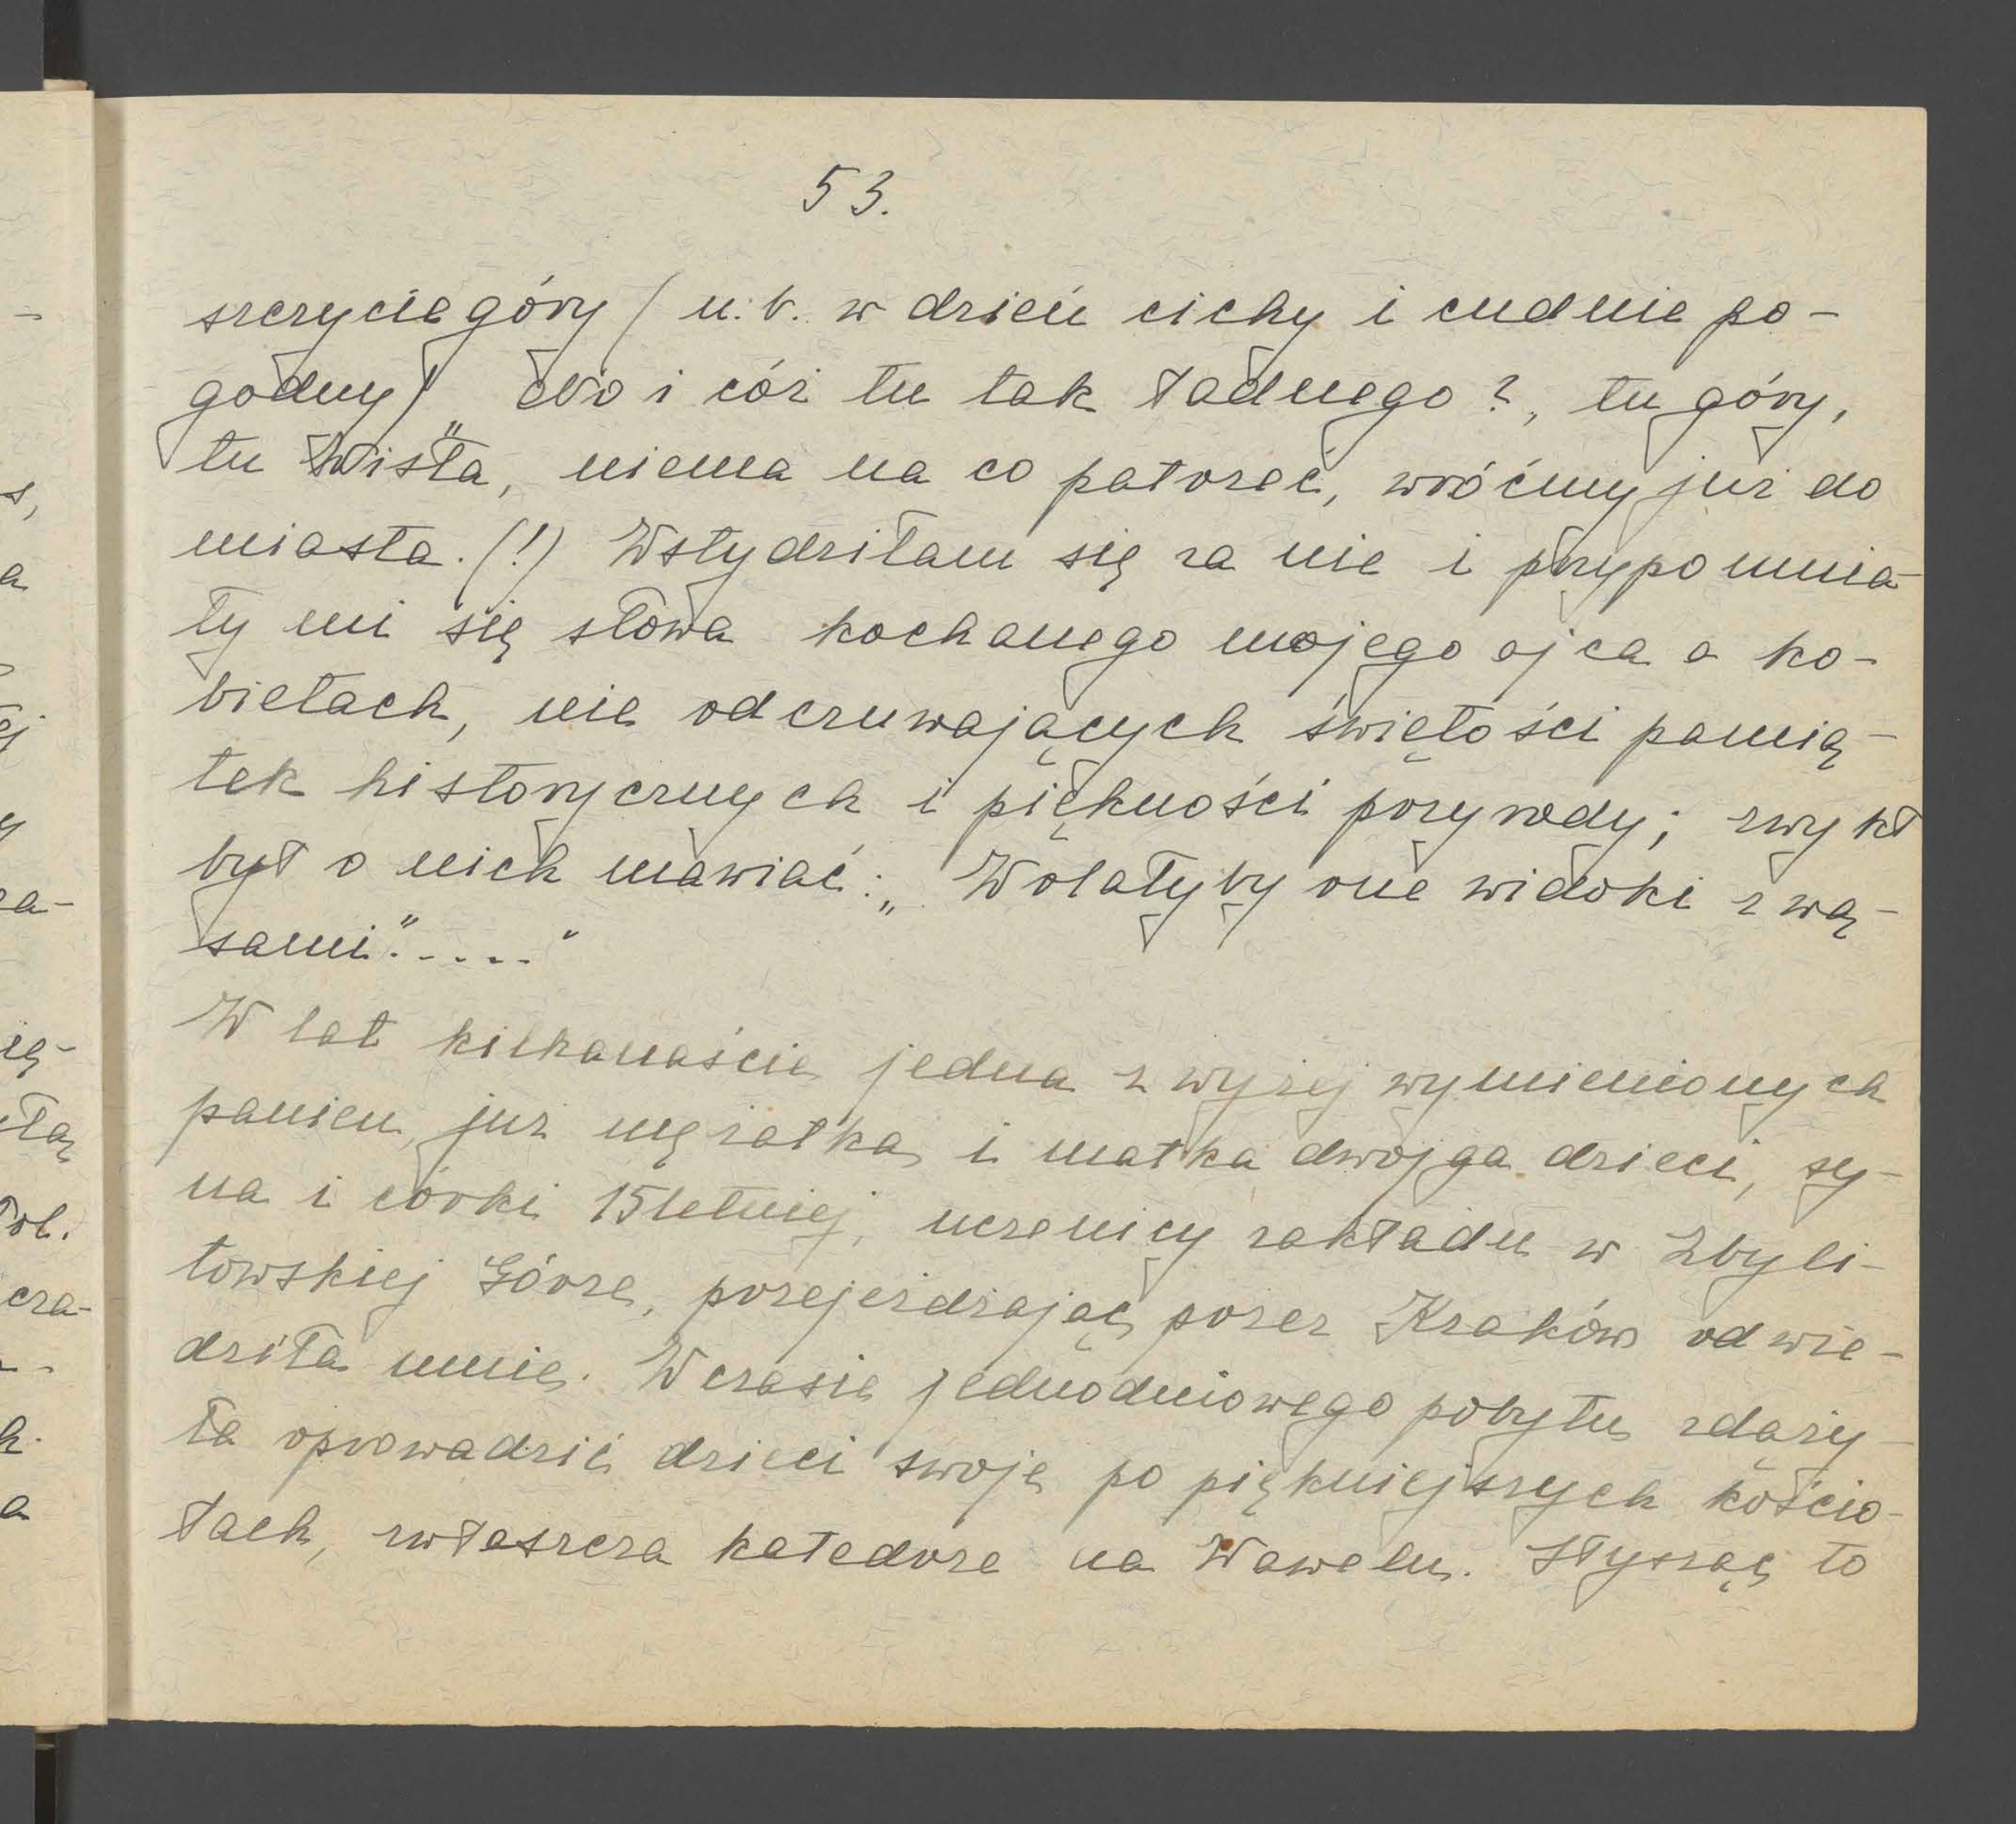 53.
szczycie góry (n.b. w dzień cichy i cudnie po-
godny) „No i cóż tu tak ładnego?, tu góry,
tu Wisła, niema na co patrzeć, wróćmy już do
miasta. (!) Wstydziłam się za nie i przypomnia-
ły mi się słowa kochanego mojego ojca o ko-
bietach, nie odczuwających świętości pamią-
tek historycznych i piękności przyrody; zwykł
był o nich mawiać: „Wolałyby one widoki z wą-
sami"....."
W lat kilkanaście jedna z wyżej wymienionych
panien, już mężatka i matka dwojga dzieci, sy-
na i córki 15letniej, uczenicy zakładu w Zbyli-
towskiej Górze, przejeżdżając przez Kraków odwie-
dziła mnie. W czasie jednodniowego pobytu zdąży-
ła oprowadzić dzieci swoje po piękniejszych kościo-
łach, zwłaszcza katedrze na Wawelu. Słysząc to